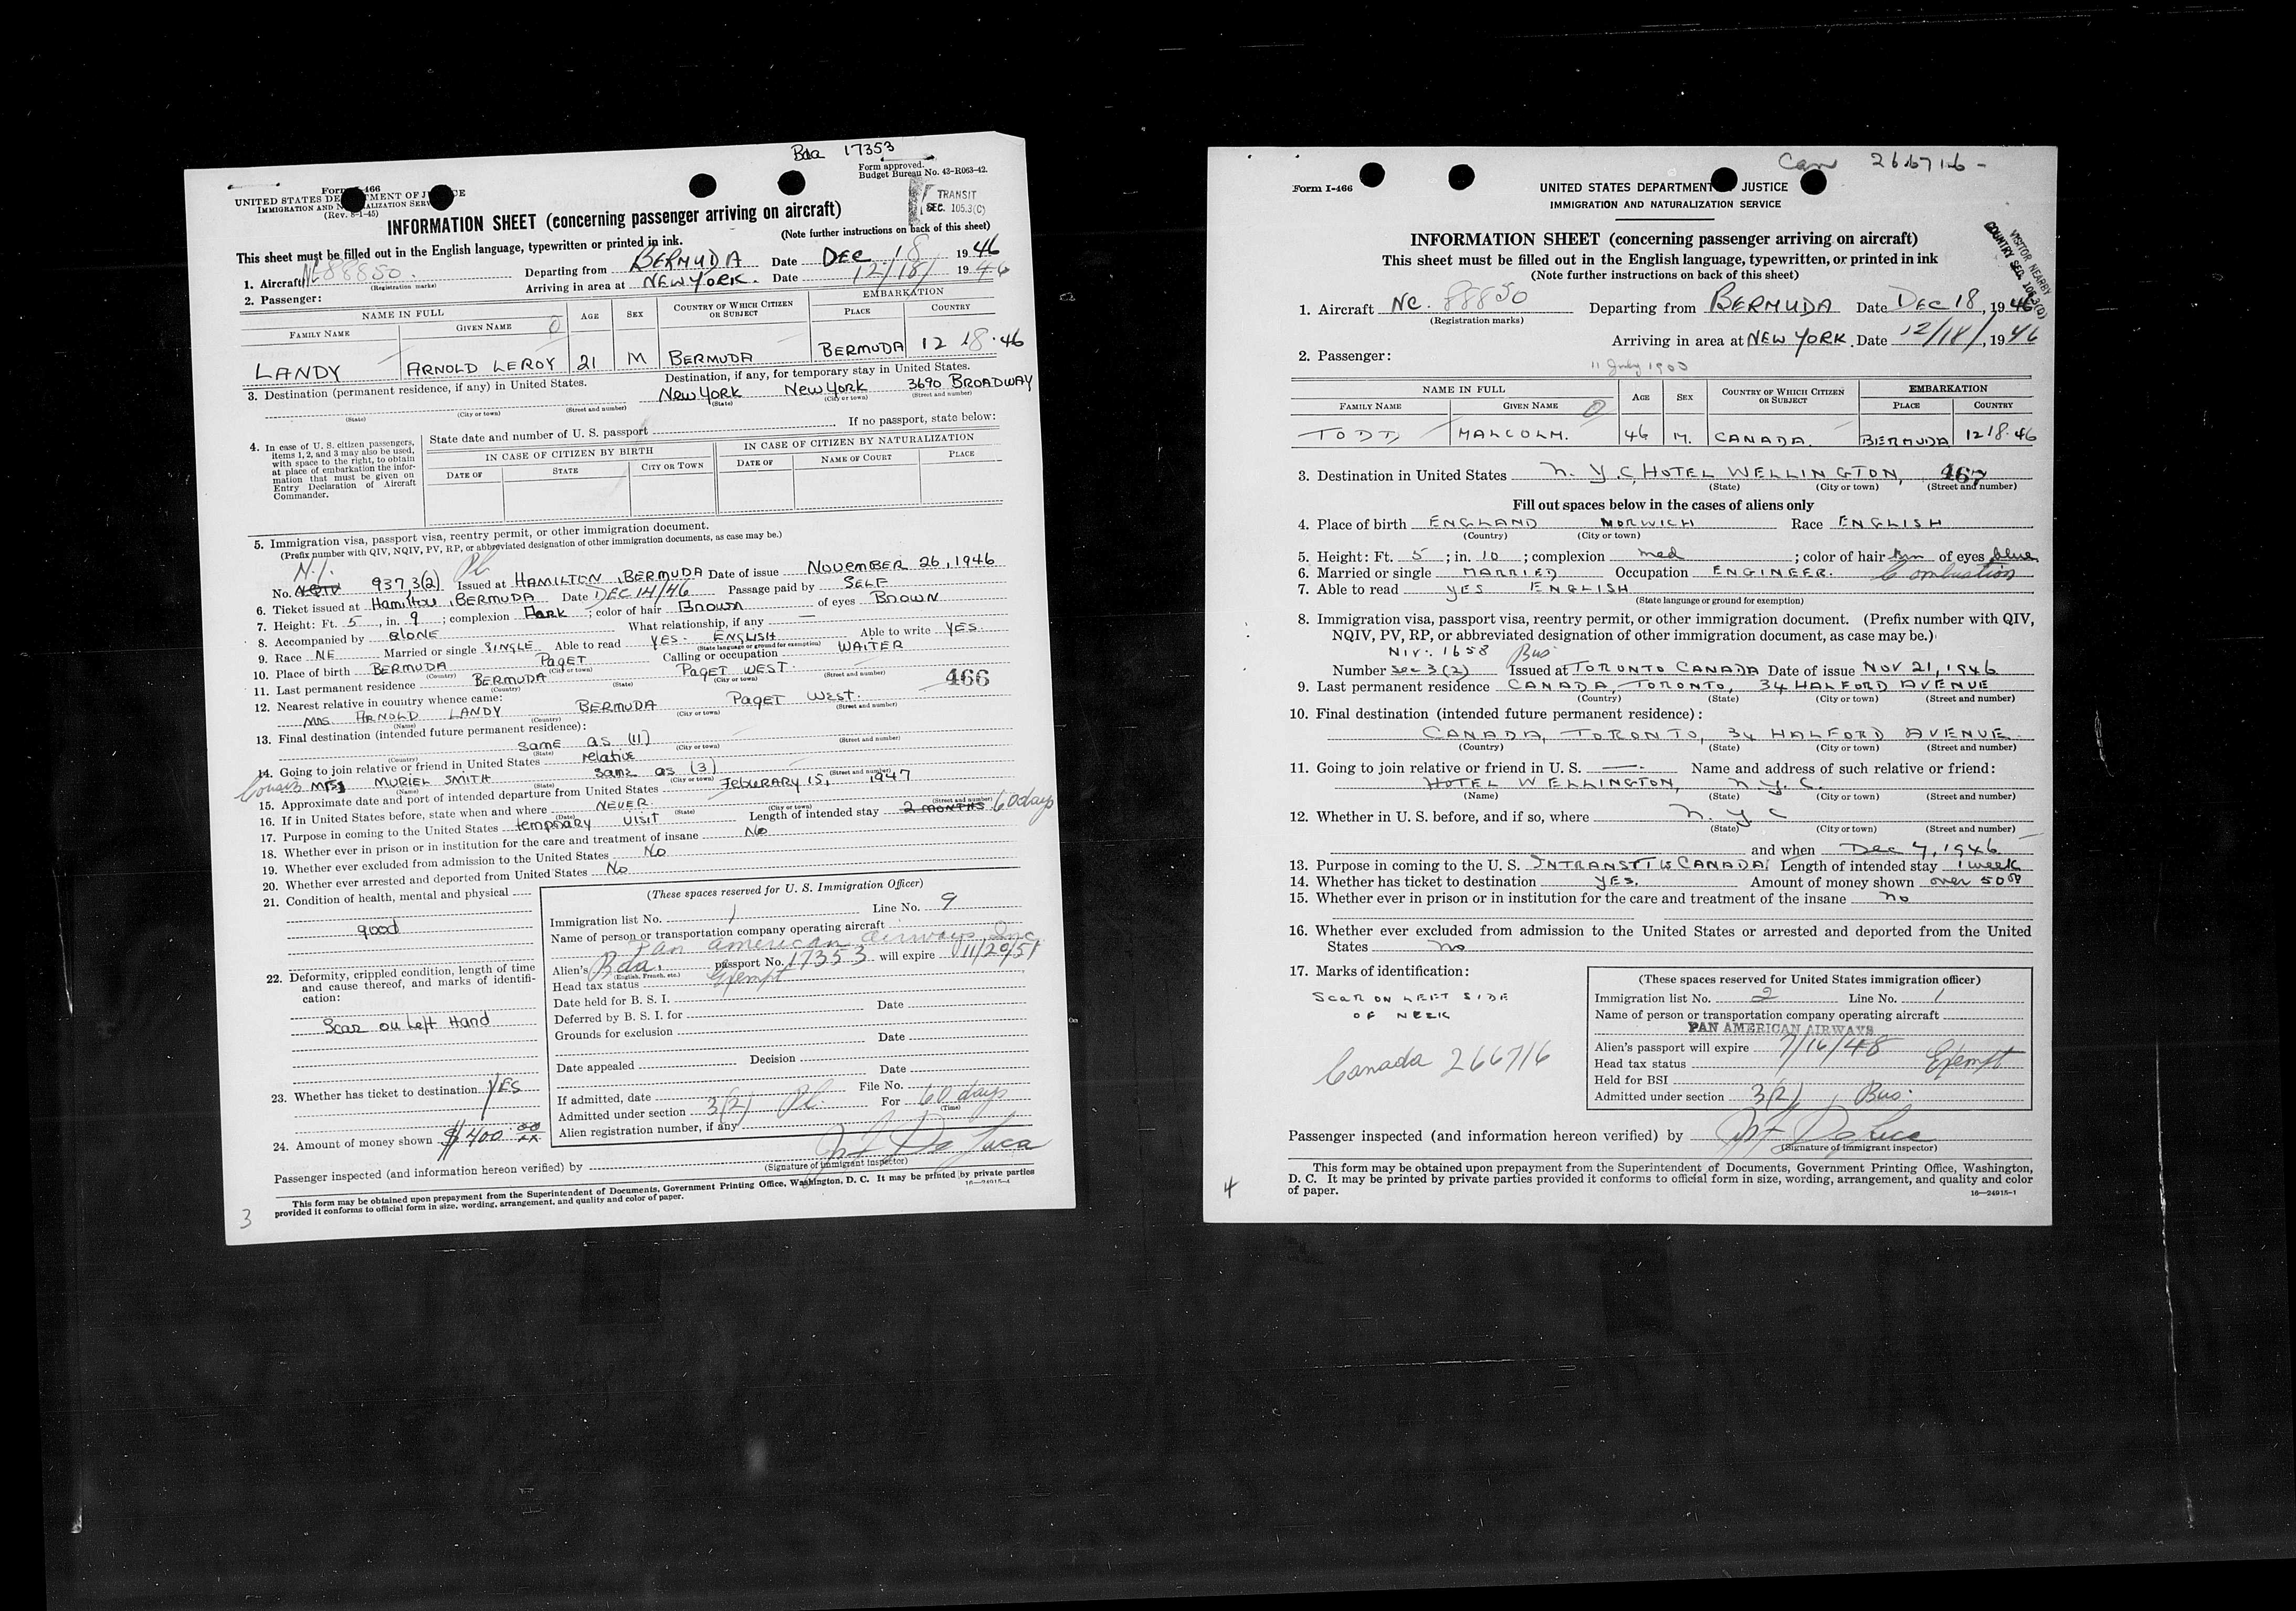 Bda 17353
Form approved.
Budget Bureau No. 43-R063-42.
Form I-466
UNITED STATES DEPARTMENT OF JUSTICE
IMMIGRATION AND NATURALIZATION SERVICE
(Rev. 8-1-45)
TRANSIT
SEC. 105.3(C)
INFORMATION SHEET (concerning passenger arriving on aircraft)
(Note further instructions on back of this sheet)
This sheet must be filled out in the English language, typewritten or printed in ink.
1. Aircraft NC 88850. Departing from BERMUDA Date DEC 18 1946
(Registration marks)
Arriving in area at NEW YORK. Date 12/18/ 1946
2. Passenger:
NAME IN FULL AGE SEX COUNTRY OF WHICH CITIZEN OR SUBJECT EMBARKATION
FAMILY NAME GIVEN NAME PLACE COUNTRY
LANDY ARNOLD LEROY 21 M BERMUDA BERMUDA 12 18·46
3. Destination (permanent residence, if any) in United States. Destination, if any, for temporary stay in United States.
New York New York 3690 BROADWAY
(State) (City or town) (Street and number) (State) (City or town) (Street and number)
4. In case of U. S. citizen passengers, items 1, 2, and 3 may also be used, with space to the right, to obtain at place of embarkation the information that must be given on Entry Declaration of Aircraft Commander.
State date and number of U. S. passport If no passport, state below:
IN CASE OF CITIZEN BY BIRTH IN CASE OF CITIZEN BY NATURALIZATION
DATE OF STATE CITY OR TOWN DATE OF NAME OF COURT PLACE
5. Immigration visa, passport visa, reentry permit, or other immigration document.
(Prefix number with QIV, NQIV, PV, RP, or abbreviated designation of other immigration documents, as case may be.)
No. 937,3(2) Pl Issued at HAMILTON, BERMUDA Date of issue NOVEMBER 26, 1946
6. Ticket issued at Hamilton, BERMUDA Date DEC 14/46 Passage paid by SELF
7. Height: Ft. 5, in. 9; complexion DARK; color of hair Brown of eyes Brown
8. Accompanied by alone What relationship, if any —
9. Race NE Married or single SINGLE Able to read YES. ENGLISH Able to write YES.
(State language or ground for exemption)
10. Place of birth BERMUDA PAGET Calling or occupation WAITER
(Country) (City or town)
11. Last permanent residence BERMUDA PAGET WEST.
(Country) (State) (City or town) (Street and number)
466
12. Nearest relative in country whence came:
MRS. ARNOLD LANDY BERMUDA PAGET WEST.
(Name) (Country) (City or town) (Street and number)
13. Final destination (intended future permanent residence):
same as (11)
(Country) (State) (City or town) (Street and number)
14. Going to join relative or friend in United States relative
Cousin Mrs MURIEL SMITH same as (3)
(Name) (State) (City or town) (Street and number)
15. Approximate date and port of intended departure from United States FEBURARY 15, 1947
16. If in United States before, state when and where NEVER
(Date) (State) (City or town) (Street and number)
17. Purpose in coming to the United States temporary visit Length of intended stay 2 MONTHS 60 days
18. Whether ever in prison or in institution for the care and treatment of insane No
19. Whether ever excluded from admission to the United States No
20. Whether ever arrested and deported from United States No
21. Condition of health, mental and physical
good
22. Deformity, crippled condition, length of time and cause thereof, and marks of identification:
Scar on Left Hand
23. Whether has ticket to destination YES
24. Amount of money shown $400.00
(These spaces reserved for U. S. Immigration Officer)
Immigration list No. 1 Line No. 9
Name of person or transportation company operating aircraft
Pan American Airways Inc.
Alien's Bda. passport No. 17353 will expire 11/20/51
(English, French, etc.)
Head tax status Exempt
Date held for B. S. I.
Deferred by B. S. I. for Date
Grounds for exclusion
Date
Date appealed Decision
Date
If admitted, date File No.
Admitted under section 3(2) Pl. For 60 days
(Time)
Alien registration number, if any
Passenger inspected (and information hereon verified) by
(Signature of immigrant inspector)
This form may be obtained upon prepayment from the Superintendent of Documents, Government Printing Office, Washington, D. C. It may be printed by private parties
provided it conforms to official form in size, wording, arrangement, and quality and color of paper.
16—24915-4
3
Can 266716 -
Form I-466
UNITED STATES DEPARTMENT OF JUSTICE
IMMIGRATION AND NATURALIZATION SERVICE
VISITOR NEARBY
COUNTRY SEC. 105.3(D)
INFORMATION SHEET (concerning passenger arriving on aircraft)
This sheet must be filled out in the English language, typewritten, or printed in ink
(Note further instructions on back of this sheet)
1. Aircraft NC. 88850 Departing from BERMUDA Date DEC 18, 1946
(Registration marks)
Arriving in area at NEW YORK. Date 12/18/, 1946
2. Passenger:
11 July 1903
NAME IN FULL AGE SEX COUNTRY OF WHICH CITIZEN OR SUBJECT EMBARKATION
FAMILY NAME GIVEN NAME PLACE COUNTRY
TODD MALCOLM. 46 M. CANADA. BERMUDA 12 18·46
3. Destination in United States N. Y.C, HOTEL WELLINGTON,
467
(State) (City or town) (Street and number)
Fill out spaces below in the cases of aliens only
4. Place of birth ENGLAND NORWICH Race ENGLISH
(Country) (City or town)
5. Height: Ft. 5; in. 10; complexion med; color of hair brn of eyes blue
6. Married or single MARRIED Occupation ENGINEER. Combustion
7. Able to read YES ENGLISH
(State language or ground for exemption)
8. Immigration visa, passport visa, reentry permit, or other immigration document. (Prefix number with QIV,
NQIV, PV, RP, or abbreviated designation of other immigration document, as case may be.)
NIV. 1658 Bus
Number Sec 3(2) Issued at TORONTO CANADA Date of issue NOV 21, 1946
9. Last permanent residence CANADA, TORONTO, 34 HALFORD AVENUE
(Country) (State) (City or town) (Street and number)
10. Final destination (intended future permanent residence):
CANADA, TORONTO, 34 HALFORD AVENUE.
(Country) (State) (City or town) (Street and number)
11. Going to join relative or friend in U. S. — Name and address of such relative or friend:
HOTEL WELLINGTON, N. Y. C.
(Name) (State) (City or town) (Street and number)
12. Whether in U. S. before, and if so, where N. Y. C
(State) (City or town) (Street and number)
and when Dec 7, 1946
13. Purpose in coming to the U. S. INTRANSIT to CANADA. Length of intended stay 1 week
14. Whether has ticket to destination YES. Amount of money shown over 50.00
15. Whether ever in prison or in institution for the care and treatment of the insane no
16. Whether ever excluded from admission to the United States or arrested and deported from the United
States no
17. Marks of identification:
SCAR ON LEFT SIDE
OF NECK
Canada 266716
(These spaces reserved for United States immigration officer)
Immigration list No. 2 Line No. 1
Name of person or transportation company operating aircraft
PAN AMERICAN AIRWAYS
Alien's passport will expire 7/16/48
Head tax status Exempt
Held for BSI
Admitted under section 3(2) Bus.
Passenger inspected (and information hereon verified) by
(Signature of immigrant inspector)
This form may be obtained upon prepayment from the Superintendent of Documents, Government Printing Office, Washington,
D. C. It may be printed by private parties provided it conforms to official form in size, wording, arrangement, and quality and color
of paper.
16—24915-1
4